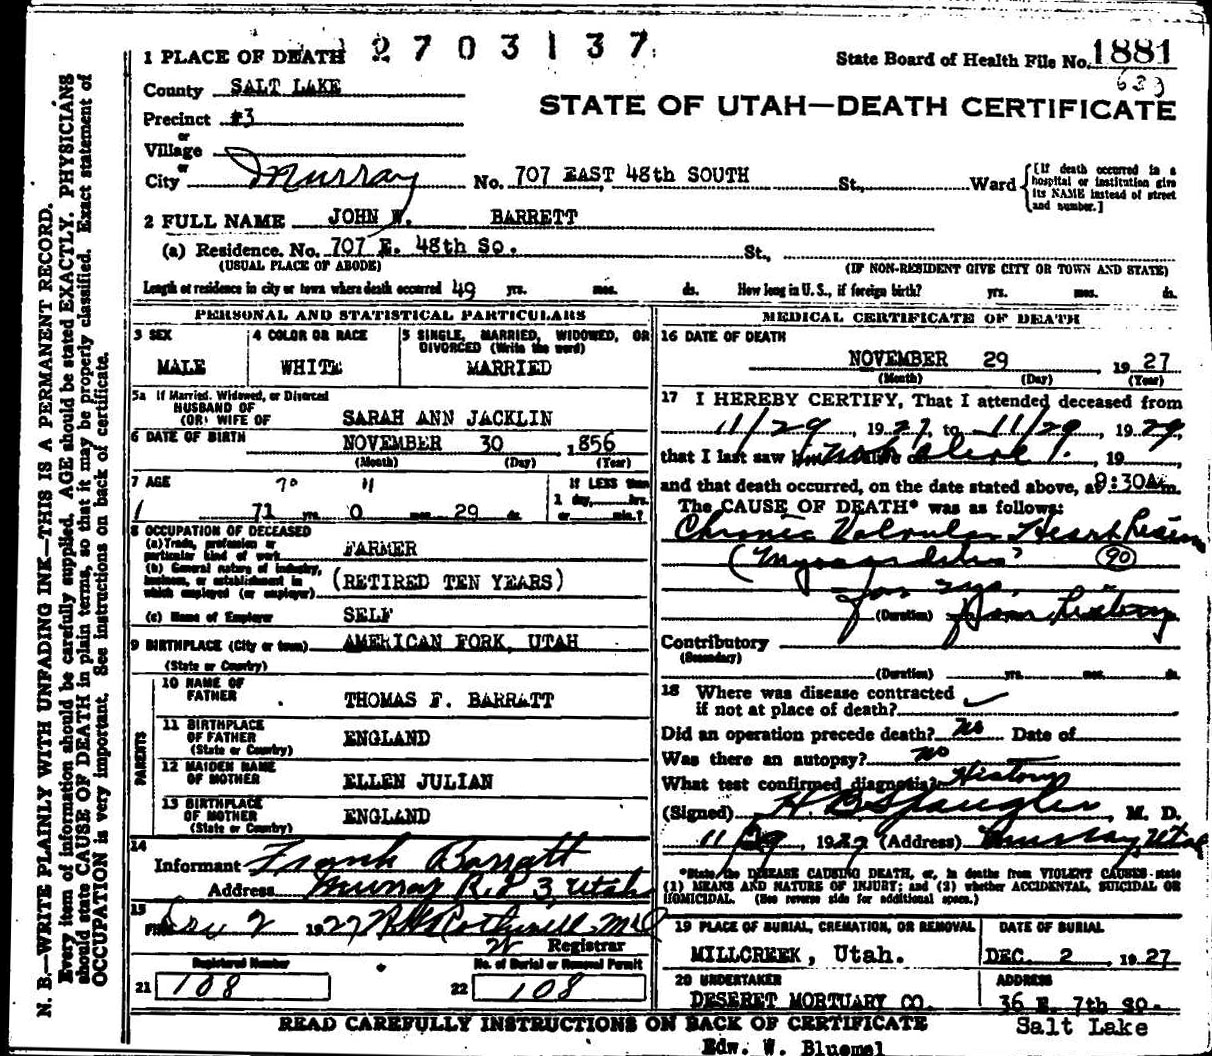 1 PLACE OF DEATH 2703137
State Board of Health File No. 1881
County SALT LAKE
STATE OF UTAH—DEATH CERTIFICATE
Precinct #3
or
Village
or
City Murray No. 707 EAST 48th SOUTH St., Ward
[If death occurred in a hospital or institution give its NAME instead of street and number.]
2 FULL NAME JOHN W. BARRETT
(a) Residence. No. 707 E. 48th So. St.,
(USUAL PLACE OF ABODE) (IF NON-RESIDENT GIVE CITY OR TOWN AND STATE)
Length of residence in city or town where death occurred 49 yrs. mos. ds. How long in U. S., if foreign birth? yrs. mos. ds.
PERSONAL AND STATISTICAL PARTICULARS
3 SEX
MALE
4 COLOR OR RACE
WHITE
5 SINGLE, MARRIED, WIDOWED, OR
DIVORCED (Write the word)
MARRIED
5a If Married, Widowed, or Divorced
HUSBAND OF
(OR) WIFE OF SARAH ANN JACKLIN
6 DATE OF BIRTH NOVEMBER 30 1856
(Month) (Day) (Year)
7 AGE 70 11
71 yrs. 0 mos. 29 ds.
If LESS than
1 day, hrs.
or min.?
8 OCCUPATION OF DECEASED
(a) Trade, profession or
particular kind of work FARMER
(b) General nature of industry,
business, or establishment in
which employed (or employer) (RETIRED TEN YEARS)
(c) Name of Employer SELF
9 BIRTHPLACE (City or town) AMERICAN FORK, UTAH
(State or Country)
PARENTS
10 NAME OF
FATHER THOMAS F. BARRATT
11 BIRTHPLACE
OF FATHER ENGLAND
(State or Country)
12 MAIDEN NAME
OF MOTHER ELLEN JULIAN
13 BIRTHPLACE
OF MOTHER ENGLAND
(State or Country)
14
Informant Frank Barratt
Address Murray R.D 3, Utah
15
Filed Dec 2 1927
Registrar
Registered Number
21 108
No. of Burial or Removal Permit
22 108
MEDICAL CERTIFICATE OF DEATH
16 DATE OF DEATH
NOVEMBER 29 1927
(Month) (Day) (Year)
17 I HEREBY CERTIFY, That I attended deceased from
11/29, 1927, to 11/29, 1929,
that I last saw h alive on , 19
and that death occurred, on the date stated above, at 8:30A m.
The CAUSE OF DEATH* was as follows:
Chronic Valvular Heart
(Myocarditis) 90
for yrs.
(Duration) from history
Contributory
(Secondary)
(Duration) yrs. mos. ds.
18 Where was disease contracted
if not at place of death?
Did an operation precede death? No Date of
Was there an autopsy? no
What test confirmed diagnosis? History
(Signed) H. B Spaugler, M. D.
11/29, 1927 (Address) Murray, Utah
*State the DISEASE CAUSING DEATH, or, in deaths from VIOLENT CAUSES state
(1) MEANS AND NATURE OF INJURY; and (2) whether ACCIDENTAL, SUICIDAL OR
HOMICIDAL. (See reverse side for additional space.)
19 PLACE OF BURIAL, CREMATION, OR REMOVAL
MILLCREEK, Utah.
DATE OF BURIAL
DEC. 2, 1927
20 UNDERTAKER
DESERET MORTUARY CO.
ADDRESS
36 E. 7th So.
Salt Lake
READ CAREFULLY INSTRUCTIONS ON BACK OF CERTIFICATE
Edw. W. Bluemel
N. B.—WRITE PLAINLY WITH UNFADING INK—THIS IS A PERMANENT RECORD.
Every item of information should be carefully supplied. AGE should be stated EXACTLY. PHYSICIANS
should state CAUSE OF DEATH in plain terms, so that it may be properly classified. Exact statement of
OCCUPATION is very important. See instructions on back of certificate.